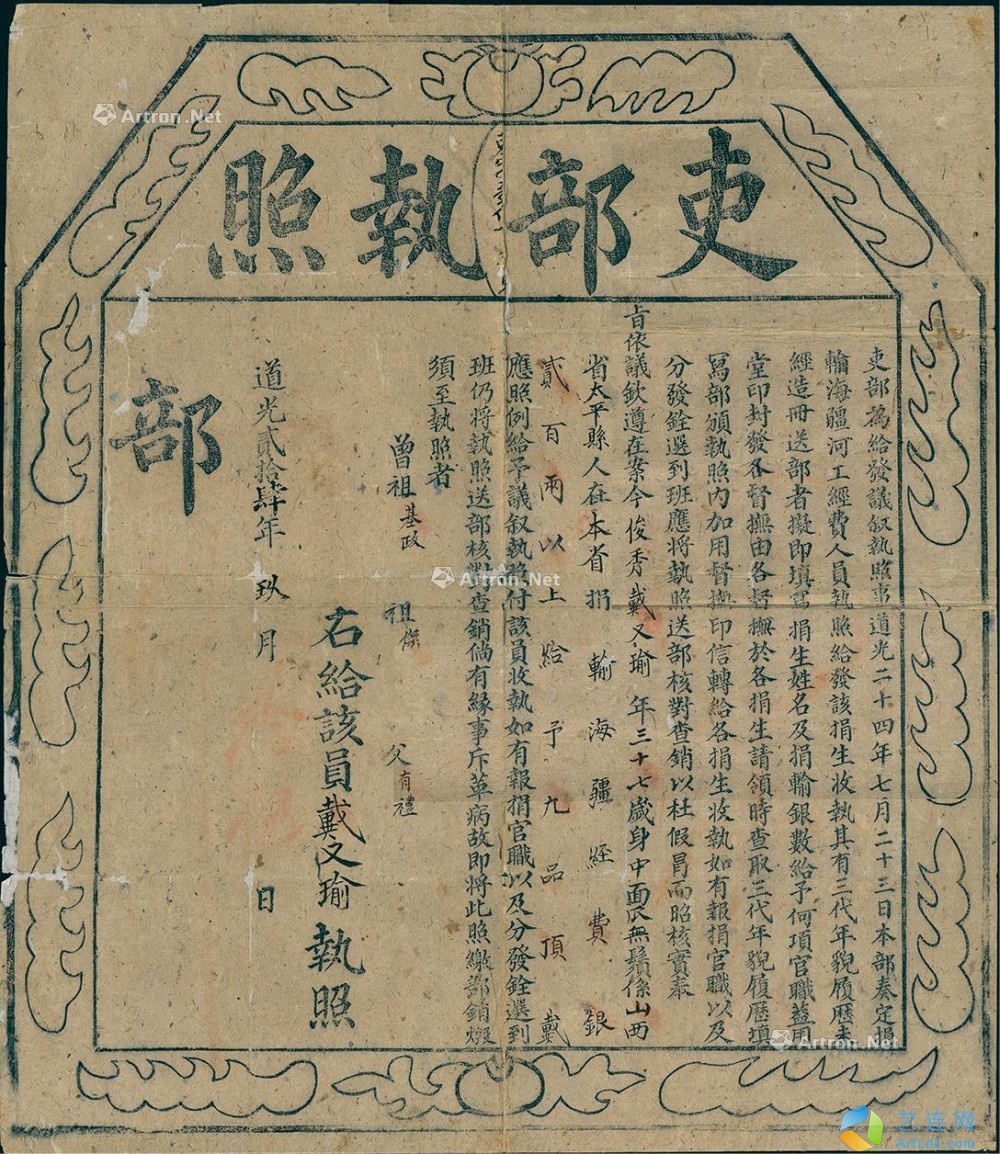 吏部執照
吏部為給發議叙執照事道光二十四年七月二十三日本部奏定捐
輸海疆河工經費人員執照給發該捐生收執其有三代年貌履歷未
經造冊送部者擬即填寫捐生姓名及捐輸銀數給予何項官職蓋用
堂印封發各督撫由各督撫於各捐生請領時查取三代年貌履歷填
寫部頒執照內加用督撫印信轉給各捐生收執如有報捐官職以及
分發銓選到班應將執照送部核對查銷以杜假冒而昭核實奉
旨依議欽遵在案今俊秀戴又瑜年三十七歲身中面 無鬚係山西
省太平縣人在本省捐輸海疆經費銀
貳百兩以上給予九品頂戴
應照例給予議叙執照付該員收執如有報捐官職以及分發銓選到
班仍將執照送部核對查銷倘有緣事斥革病故即將此照繳部銷燬
須至執照者
曾祖基政 祖傑 父有禮
右給該員戴又瑜執照
道光貳拾肆年玖月 日
部
Artron.Net
Artron.Net
Artron.Net
艺连网
ArtLnk.com